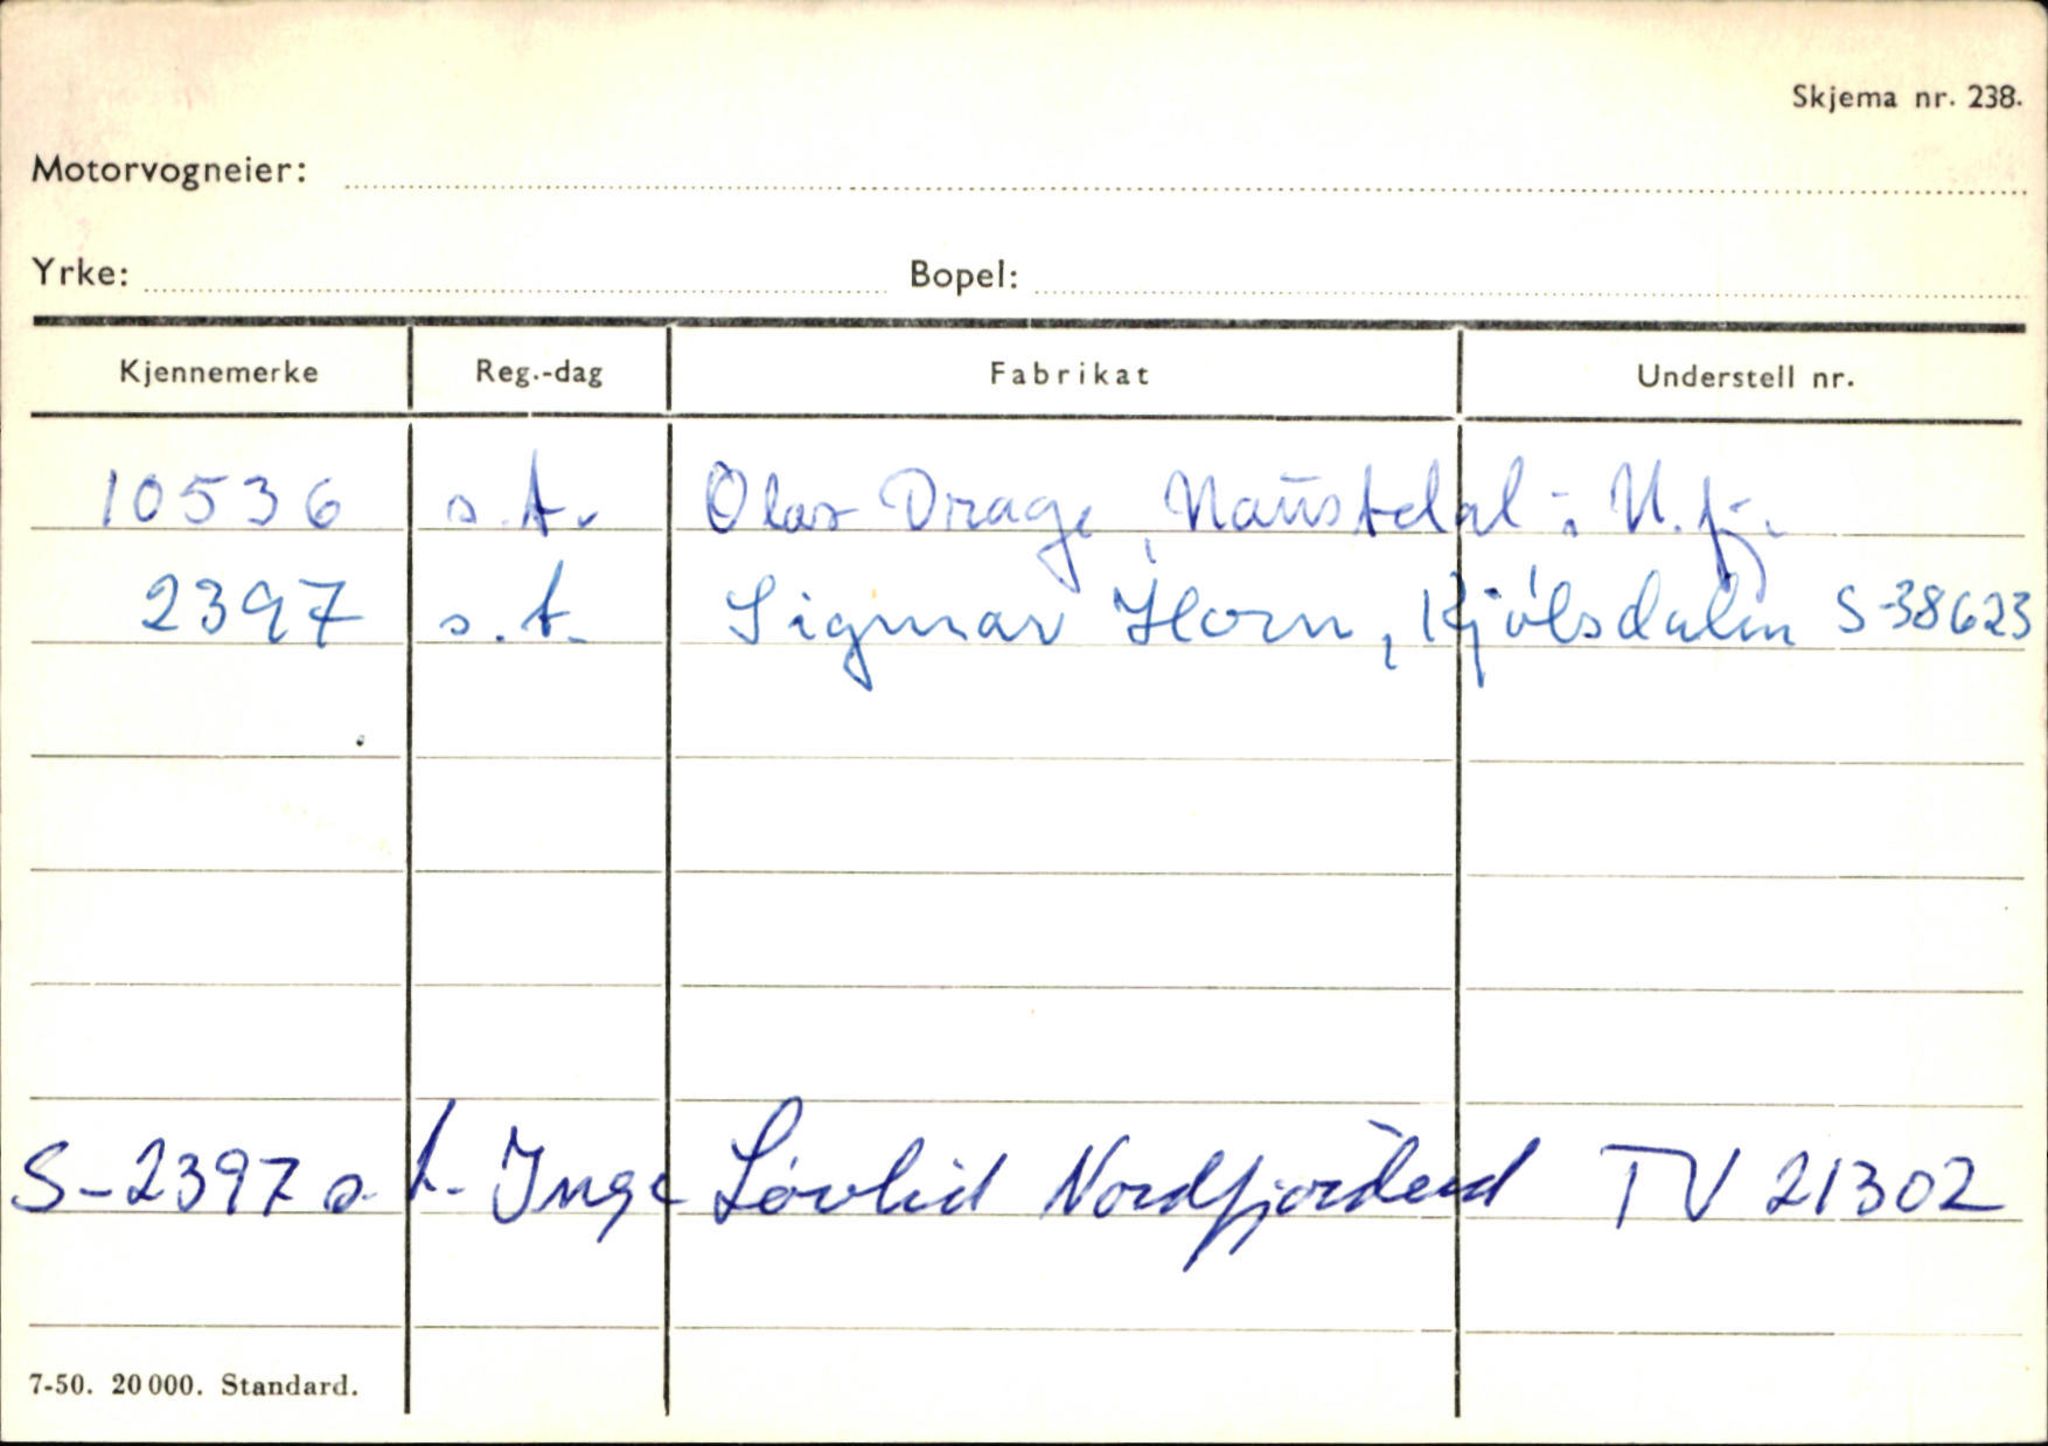 Skjema nr. 238.
Motorvogneier:
Yrke: Bopel:
Kjennemerke Reg.-dag Fabrikat Understell nr.
10536 s.t. Olav Drage, Naustdal i N.fj.
2397 s.t. Sigmar Horn, Kjölsdalen S-38623
S-2397 s.t. Inge Løvlid Nordfjordeid TV 21302
7-50. 20 000. Standard.